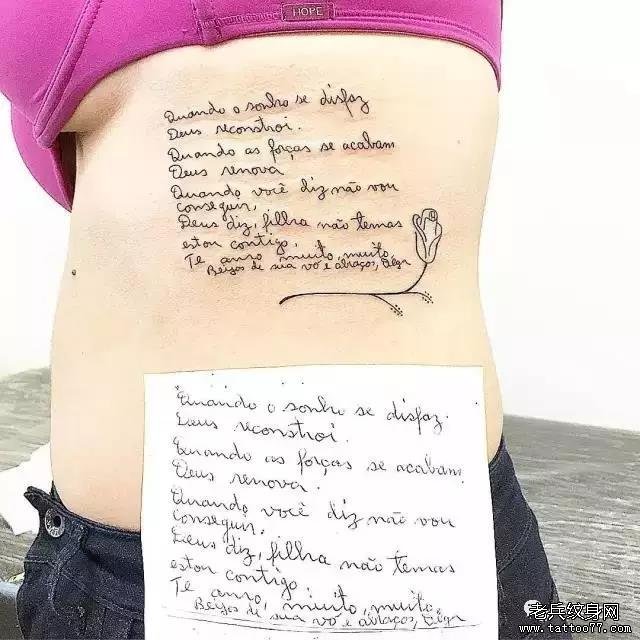 HOPE
Quando o sonho se disfaz
Deus reconstroi.
Quando as forças se acabam
Deus renova
Quando você diz não vou
conseguir,
Deus diz, filha não temas
estou contigo,
Te amo muito, muito,
Beijos de sua vó e abraços,
Quando o sonho se disfaz.
Deus reconstroi.
Quando as forças se acabam
Deus renova.
Quando você diz não vou
conseguir,
Deus diz, filha não temas
estou contigo,
Te amo, muito, muito,
Beijos de sua vó e abraços,
老兵纹身网
www.tattoo77.com